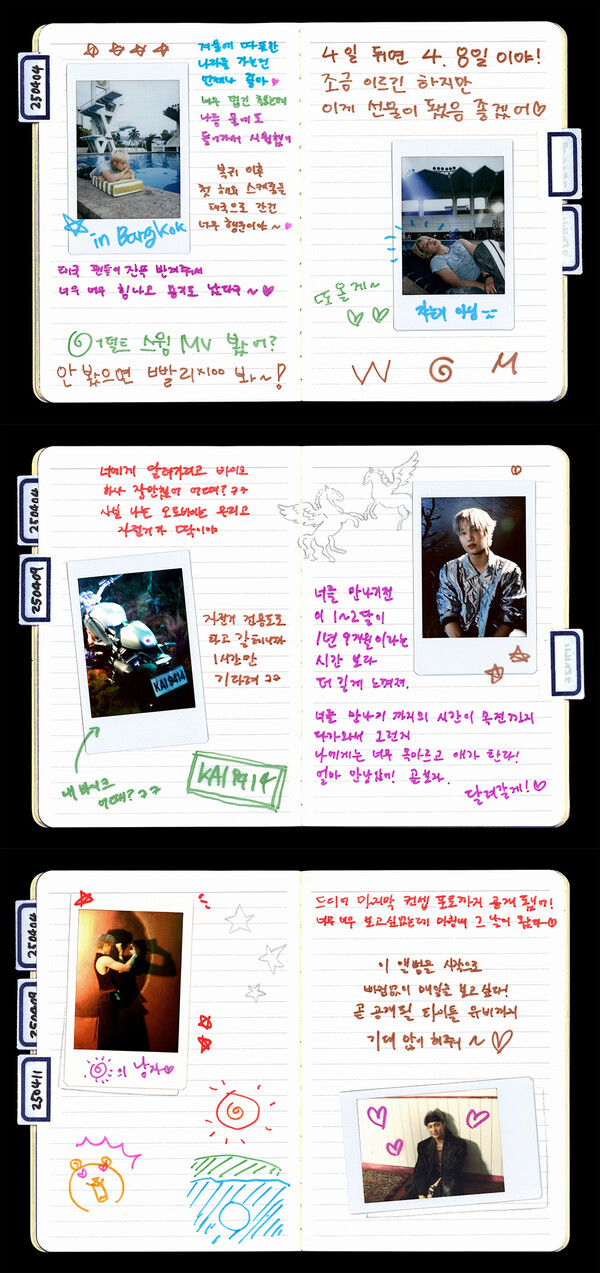 250404
겨울에 따뜻한
나라를 가는건
언제나 좋아
너무 덥긴 했는데
나름 물에도
들어가서 시원했어
복귀 이후
첫 해외 스케줄을
태국으로 간건
너무 행운이야~
in Bangkok
태국 팬들이 잔뜩 반겨줘서
너무 너무 힘나고 용기도 났다구~♡
어덜트 스윔 MV 봤어?
안 봤으면 빨리 보고 와~!
4일 뒤면 4.8일이야!
조금 이르긴 하지만
이게 선물이 됐음 좋겠어♡
또 올게~
자는거 아님
W M
250404
250409
너에게 달려가려고 바이크
하나 장만했어 어때? ㅋㅋ
사실 나는 오토바이는 무리고
자전거가 딱이야
자전거 전용도로
타고 갈테니까
1시간만
기다려 ㅋㅋ
KAI 9414
내 바이크
어때? ㅋㅋ
KAI 9414
너를 만나기전
이 1~2달이
1년 9개월이라는
시간 보다
더 길게 느껴져.
너를 만나기 까지의 시간이 목전까지
다가와서 그런지
나에게는 너무 목마르고 애가 탄다!
얼마 안남았어! 곧보자.
달려갈게!♡
250404
250409
250411
의 남자♡
드디어 마지막 컨셉 포토까지 공개 됐어!
너무 너무 보고싶었는데 마침내 그 날이 왔다~♡
이 앨범을 시작으로
빠짐없이 매일을 보고 싶다!
곧 공개될 타이틀 뮤비까지
기대 많이 해줘~♡